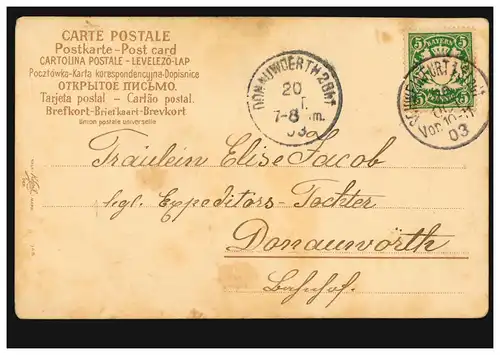 CARTE POSTALE
Postkarte - Post card
CARTOLINA POSTALE - LEVELEZO-LAP
Pocztówka-Karta korespondencyjna-Dopisnice
ОТКРЫТОЕ ПИСЬМО.
Tarjeta postal - Cartão postal.
Brefkort-Briefkaart-Brevkort
Union postale universelle
DONAUWOERTH 2 Bht
20
7-8 m.
03
5 BAYERN 5
Vor. 10-11
03
Fräulein Elise Jacob
kgl. Expeditors-Tochter
Donauwörth
Bahnhof.